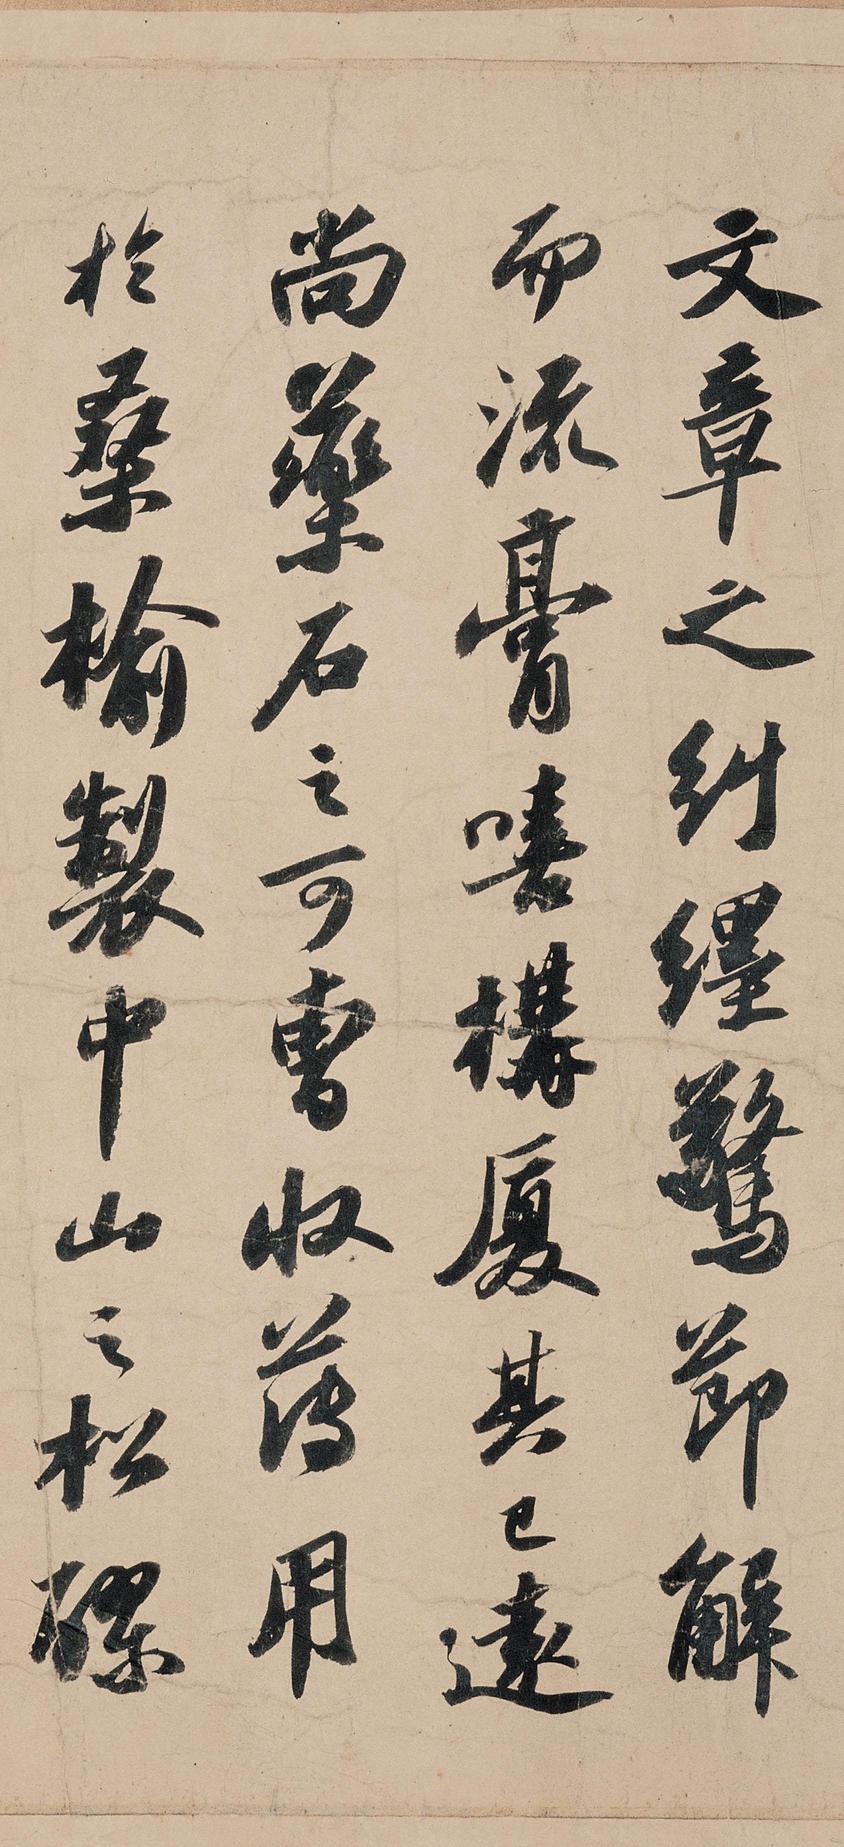 文章之糾纆驚節解
而流膏嘻構廈其已遠
尚藥石之可曹收薄用
於桑榆製中山之松醪